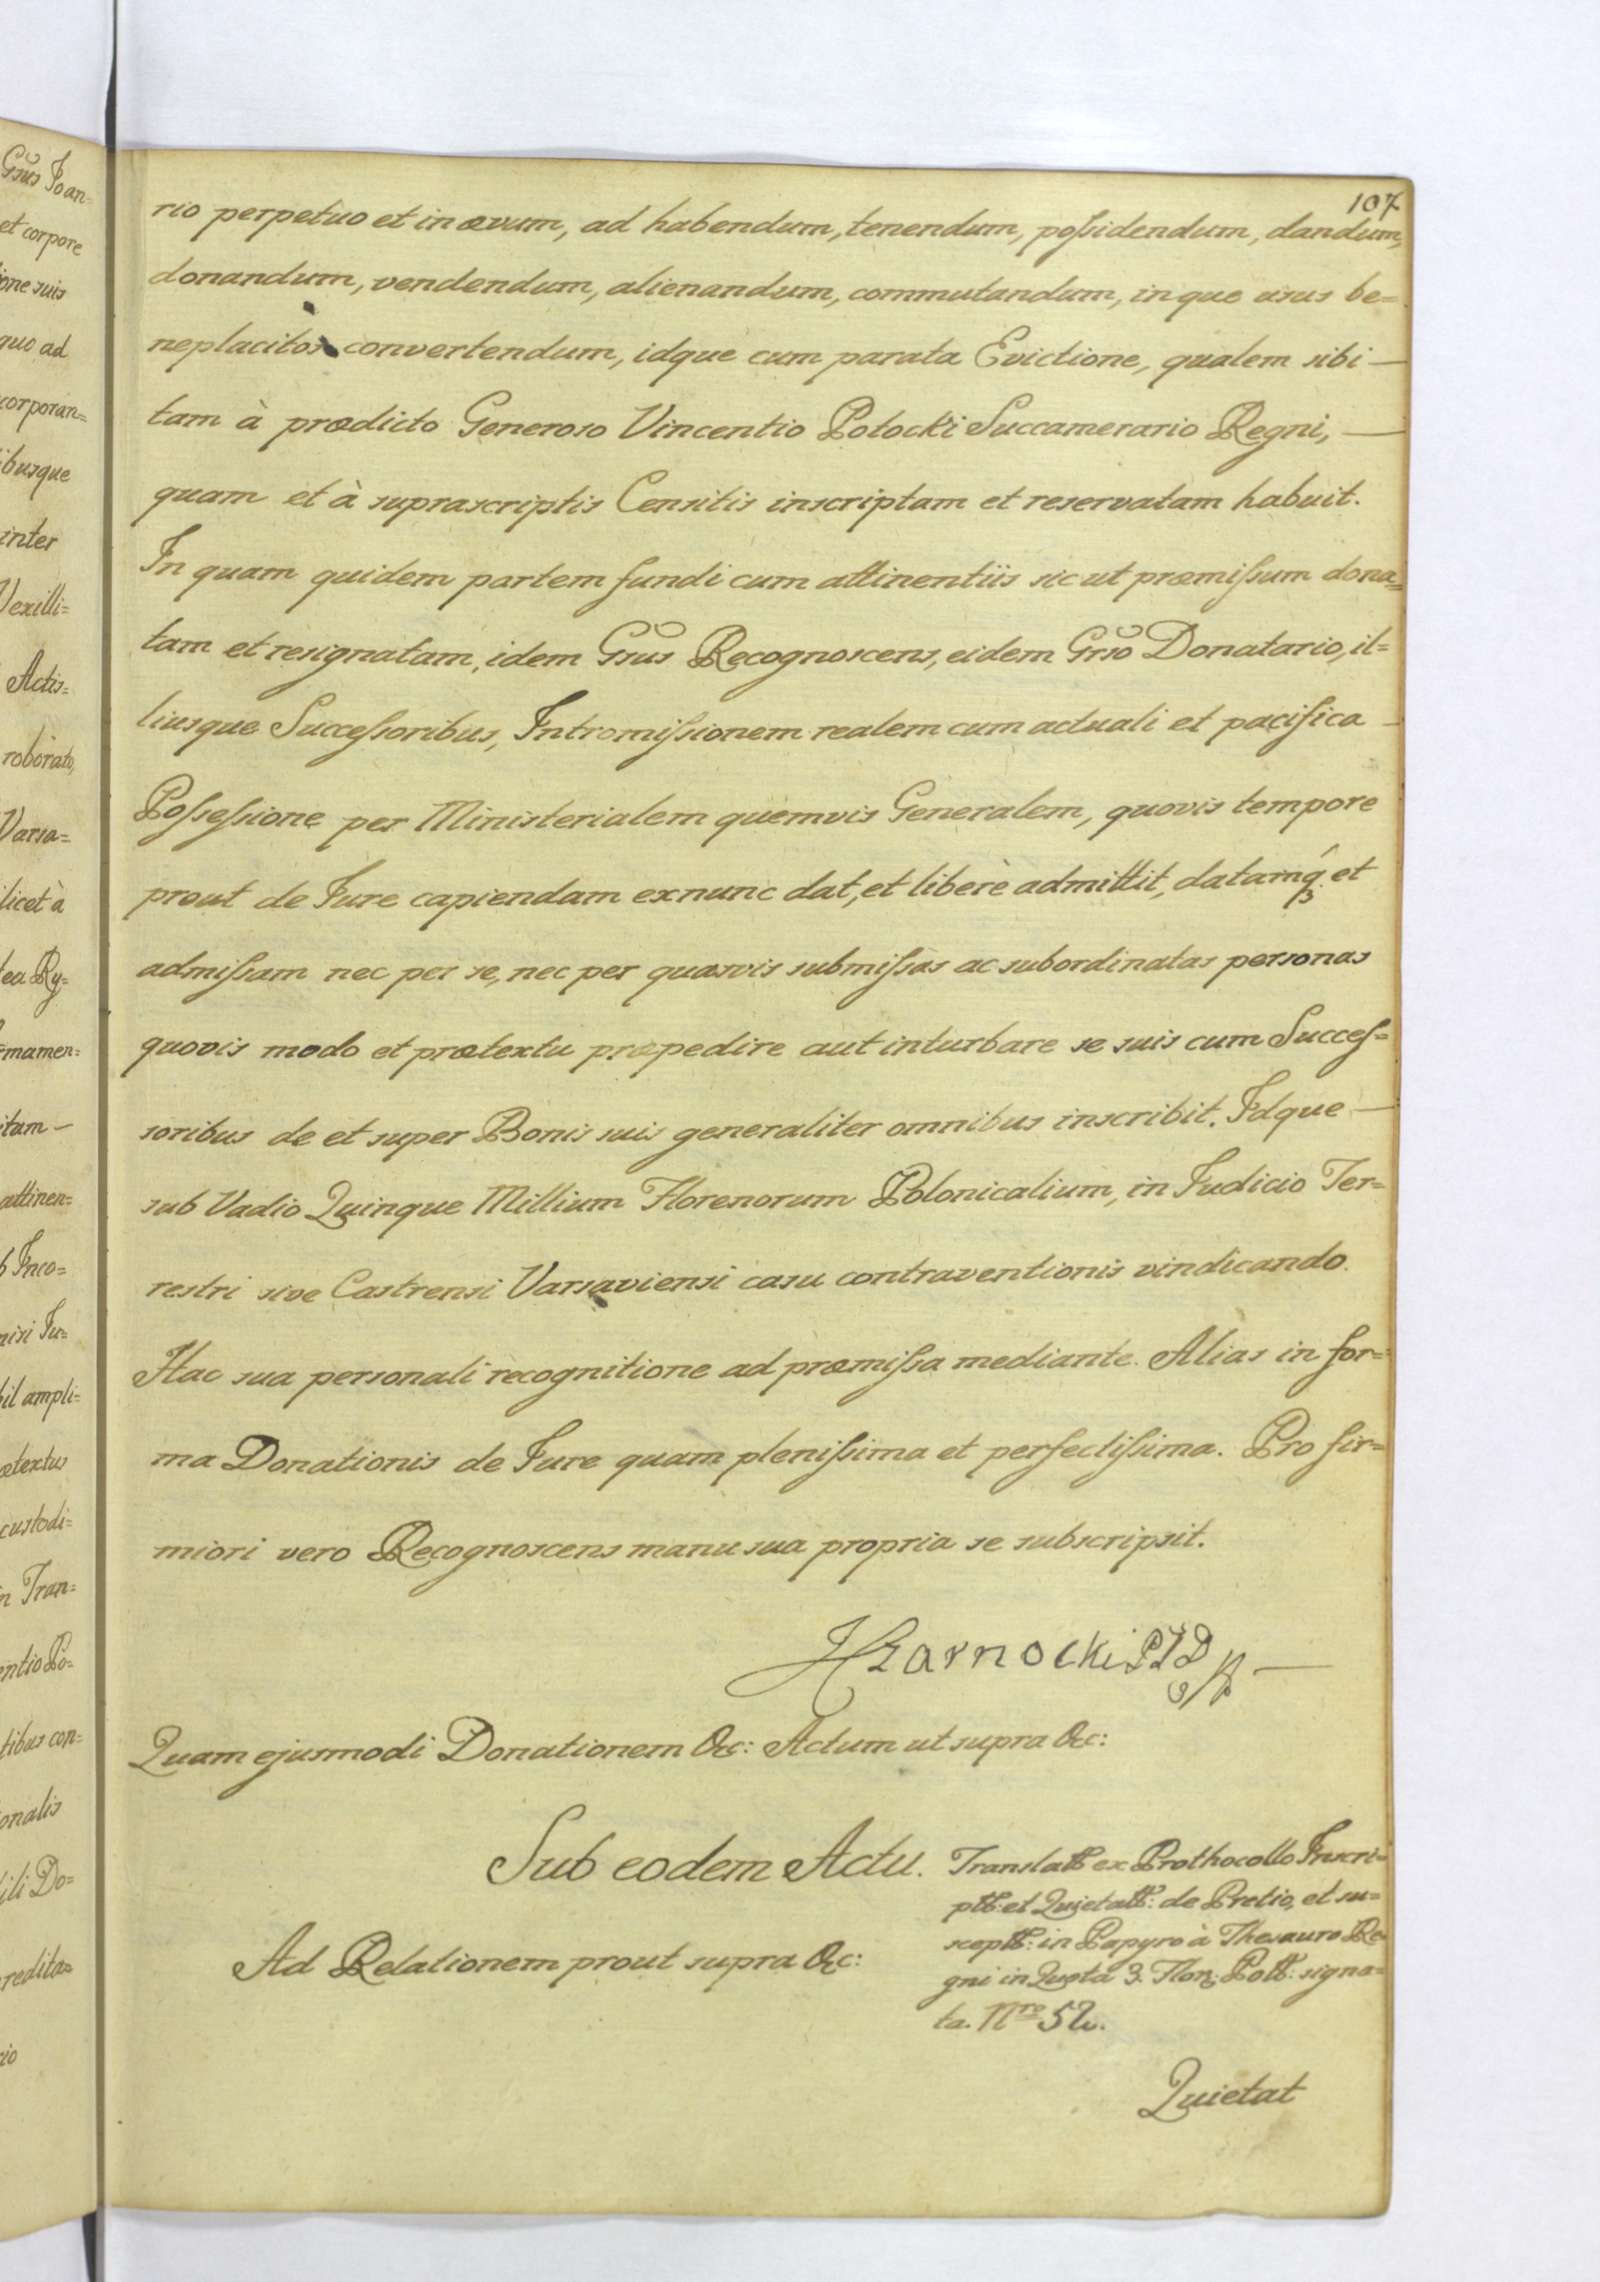 107
rio perpetuo et in ævum, ad habendum, tenendum, poſsidendum, dandum,
donandum, vendendum, alienandum, commutandum, in que usus be=
neplacitos convertendum, idque cum parata Evictione, qualem sibi —
tam à prædicto Generoso Vincentio Potocki Succamerario Regni, —
quam et à suprascriptis Censitis inscriptam et reservatam habuit.
In quam quidem partem fundi cum attinentiis sic ut præmiſsum dona=
tam et resignatam, idem Gsus Recognoscens, eidem Grso Donatario, il=
liusque Succeſsoribus, Intromiſsionem realem cum actuali et pacifica —
Poſseſsione per Ministerialem quemvis Generalem, quovis tempore
prout de Jure capiendam exnunc dat, et liberè admittit, datamq́ et
admiſsam nec per se, nec per quasvis submiſsas ac subordinatas personas
quovis modo et prætextu præpedire aut inturbare se suis cum Succeſ=
soribus de et super Bonis suis generaliter omnibus inscribit. Idque —
sub Vadio Quinque Millium Florenorum Polonicalium, in Judicio Ter=
restri sive Castrensi Varsaviensi casu contraventionis vindicando.
Hac sua personali recognitione ad præmiſsa mediante. Alias in for=
ma Donationis de Jure quam pleniſsima et perfectiſsima. Pro fir=
miori vero Recognoscens manu sua propria se subscripsit.
Quam ejusmodi Donationem &c: Actum ut supra &c:
Sub eodem Actu.
Ad Relationem prout supra &c:
ex Prothocollo Inscri=
et de Pretio, et su=
in Papyro à Thesauro Re
gni in Quota 3. Flor: signa=
ta. Nro 52.
Quietat
Gsus Joan=
et corpore
one suis
quo ad
corporan=
ibusque
inter
Vexilli=
Actis=
roborato,
Varsa=
licet à
tea Ry=
mamen=
itam —
attinen=
b Inco=
nisi Ju=
il ampli=
ætextus
custodi=
n Tran=
entio Po=
tibus con=
onalis
ili Do=
redita=
io